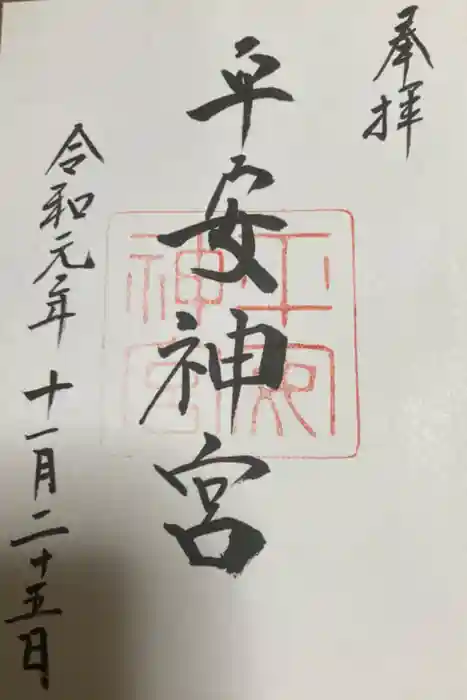 奉拝
平安神宮
平安神宮
令和元年十一月二十五日